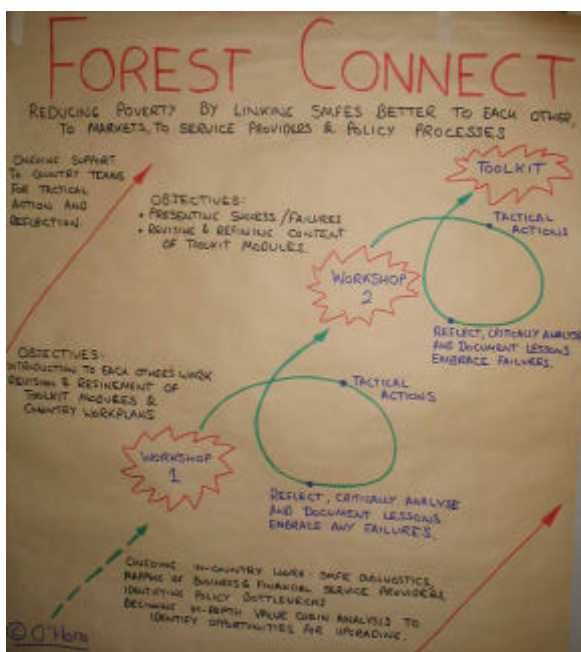 FOREST CONNECT
REDUCING POVERTY BY LINKING SMFES BETTER TO EACH OTHER,
TO MARKETS, TO SERVICE PROVIDERS & POLICY PROCESSES
ONGOING SUPPORT
TO COUNTRY TEAMS
FOR TACTICAL
ACTION AND
REFLECTION.
OBJECTIVES:
• PRESENTING SUCCESS/FAILURES
• REVISING & REFINING CONTENT
OF TOOLKIT MODULES.
TOOLKIT
TACTICAL
ACTIONS
WORKSHOP
2
REFLECT, CRITICALLY ANALYSE
AND DOCUMENT LESSONS
EMBRACE FAILURES.
OBJECTIVES:
INTRODUCTION TO EACH OTHERS WORK
REVISION & REFINEMENT OF
TOOLKIT MODULES &
COUNTRY WORKPLANS
TACTICAL
ACTIONS
WORKSHOP
1
REFLECT, CRITICALLY ANALYSE
AND DOCUMENT LESSONS
EMBRACE ANY FAILURES.
ONGOING IN-COUNTRY WORK: SMFE DIAGNOSTICS,
MAPPING OF BUSINESS & FINANCIAL SERVICE PROVIDERS,
IDENTIFYING POLICY BOTTLENECKS
BEGINNING IN-DEPTH VALUE CHAIN ANALYSIS TO
IDENTIFY OPPORTUNITIES FOR UPGRADING.